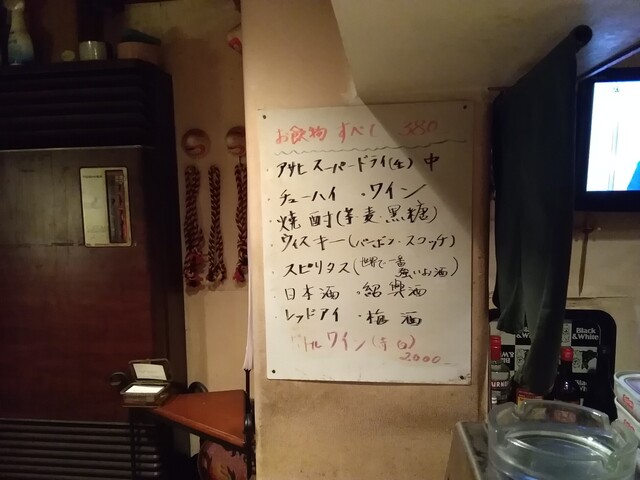 お飲物 すべて 380
・アサヒスーパードライ(生)中
・チューハイ ・ワイン
・焼酎(芋・麦・黒糖)
・ウィスキー(バーボン・スコッチ)
・スピリタス(世界で一番強いお酒)
・日本酒 ・紹興酒
・レッドアイ ・梅酒
トルワイン(赤白)
2000
Black
&White